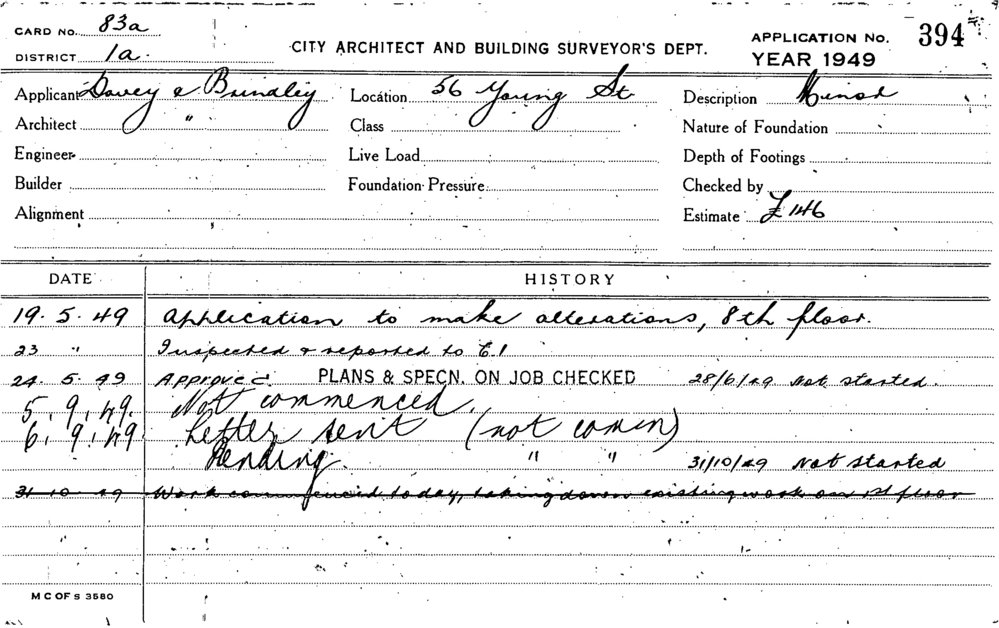 CARD No. 83a
DISTRICT 1a.
CITY ARCHITECT AND BUILDING SURVEYOR'S DEPT.
APPLICATION No. 394
YEAR 1949
Applicant Davey & Brindley
Location 56 Young St
Description Minor
Architect "
Class
Nature of Foundation
Engineer
Live Load
Depth of Footings
Builder
Foundation Pressure
Checked by
Alignment
Estimate £146
DATE HISTORY
19.5.49 Application to make alterations, 8th floor.
23 " Inspected & reported to C.I
24.5.49 Approved. PLANS & SPECN. ON JOB CHECKED 28/6/49 Not started.
5.9.49. Not commenced.
6.9.49 Letter sent (not comen)
Pending. " " 31/10/49 Not started
31 10 49 Work commenced today, taking down existing work on 1st floor
M C OF S 3580